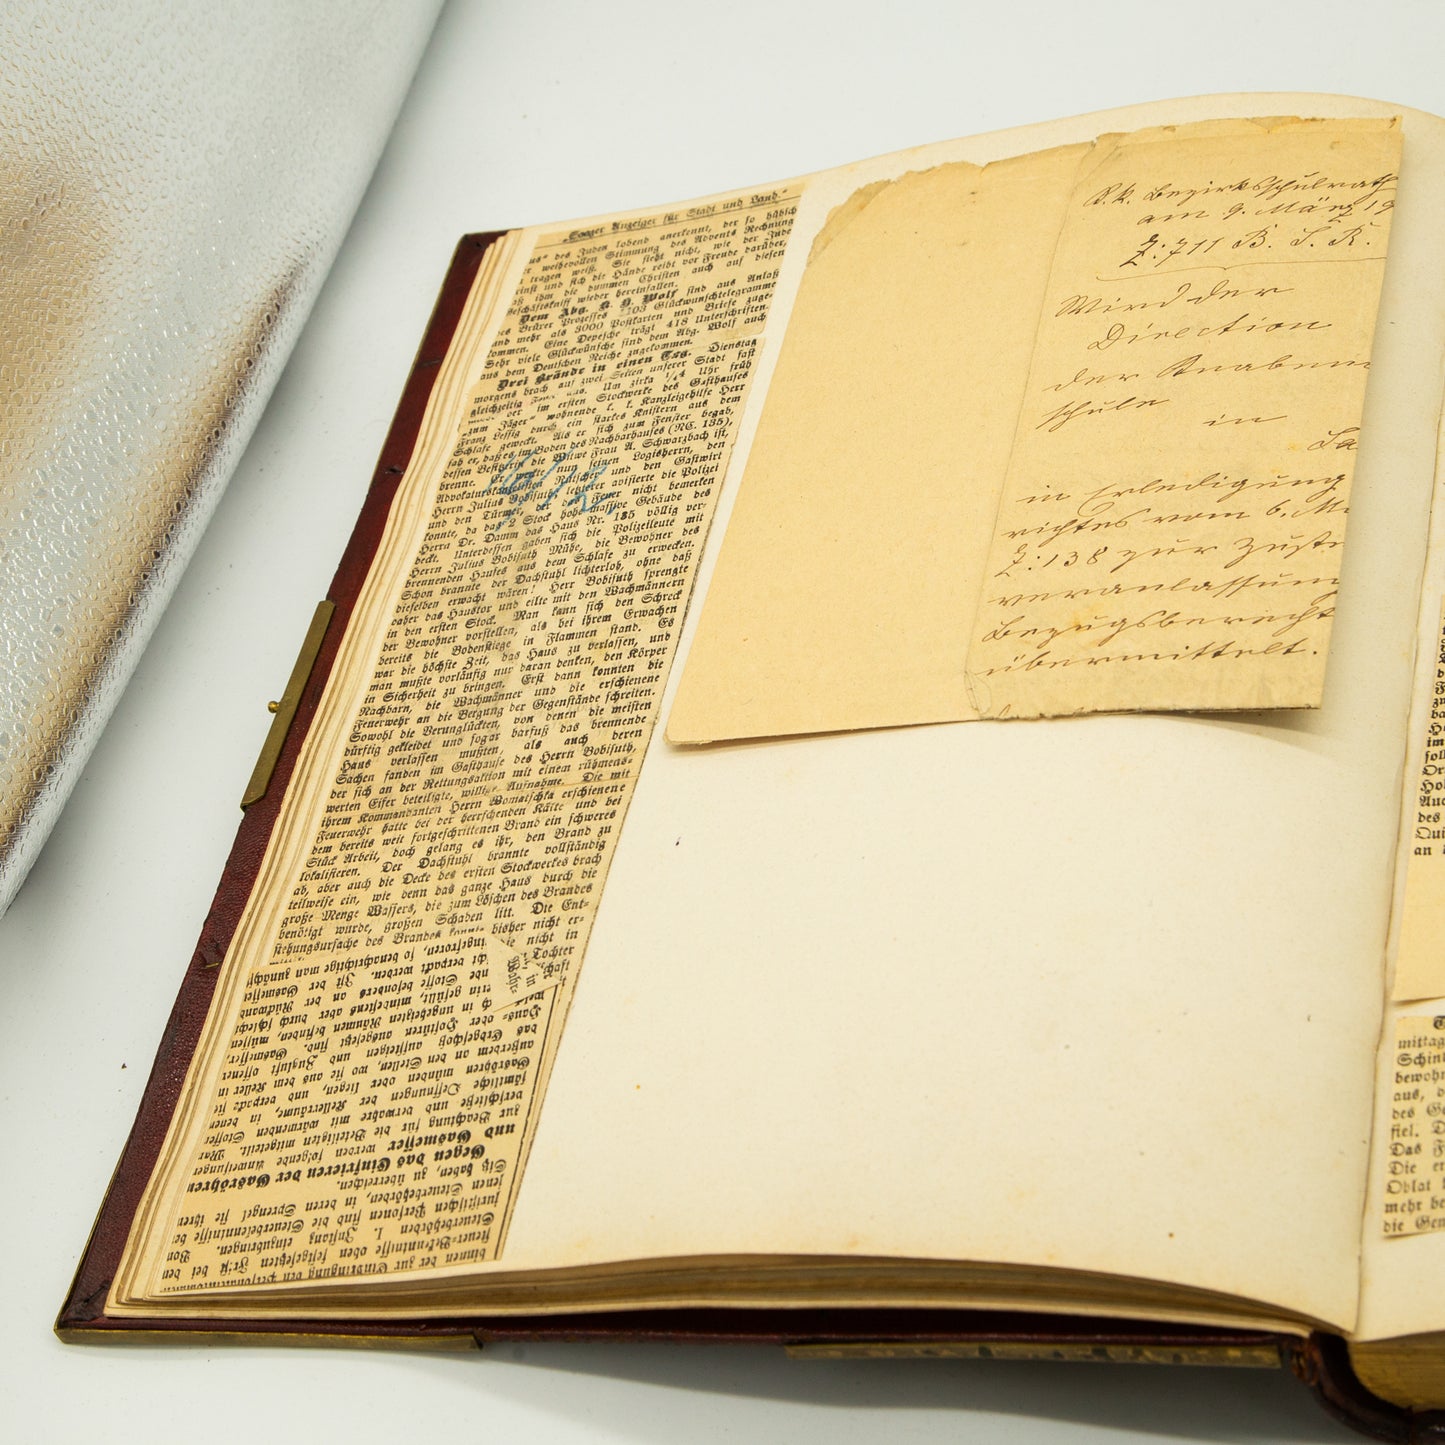 „Saazer Anzeiger für Stadt und Land."
us" des Juden lobend anerkennt, der so hübsch
r weihevollen Stimmung des Advents Rechnung
tragen weiß. Sie sieht nicht, wie der Jude
rinst und sich die Hände reibt vor Freude darüber,
aß ihm die dummen Christen auch auf diesen
Geschäftskniff wieder hereinfallen.
Dem Abg. K. H. Wolf sind aus Anlaß
des Brüxer Prozesses 103 Glückwunschtelegramme
und mehr als 3000 Postkarten und Briefe zuge-
kommen. Eine Depesche trägt 418 Unterschriften.
Sehr viele Glückwünsche sind dem Abg. Wolf auch
aus dem Deutschen Reiche zugekommen.
Drei Brände in einen Tag. Dienstag
morgens brach auf zwei Seiten unserer Stadt fast
gleichzeitig aus. Um zirka ¼4 Uhr früh
der im ersten Stockwerke des Gasthauses
„zum Jäger" wohnende k. k. Kanzleigehilfe Herr
Franz Lessig durch ein starkes Knistern aus dem
Schlafe geweckt. Als er sich zum Fenster begab,
sah er, daß es im Boden des Nachbarhauses (NC. 135),
dessen Besitzerin die Witwe Frau A. Schwarzbach ist,
brenne. Er weckte nun seinen Logisherrn, den
Advokaturskanzlisten Ratscher und den Gastwirt
Herrn Julius Bobisuth, letzterer avisierte die Polizei
und den Türmer, der das Feuer nicht bemerken
konnte, da das 2 Stock hohe massive Gebäude des
Herrn Dr. Damm das Haus Nr. 135 völlig ver-
deckt. Unterdessen gaben sich die Polizeileute mit
Herrn Julius Bobisuth Mühe, die Bewohner des
brennenden Hauses aus dem Schlafe zu erwecken.
Schon brannte der Dachstuhl lichterloh, ohne daß
dieselben erwacht wären! Herr Bobisuth sprengte
daher das Haustor und eilte mit den Wachmännern
in den ersten Stock. Man kann sich den Schreck
der Bewohner vorstellen, als bei ihrem Erwachen
bereits die Bodenstiege in Flammen stand. Es
war die höchste Zeit, das Haus zu verlassen, und
man mußte vorläufig nur daran denken, den Körper
in Sicherheit zu bringen. Erst dann konnten die
Nachbarn, die Wachmänner und die erschienene
Feuerwehr an die Bergung der Gegenstände schreiten.
Sowohl die Verunglückten, von denen die meisten
dürftig gekleidet und sogar barfuß das brennende
Haus verlassen mußten, als auch deren
Sachen fanden im Gasthause des Herrn Bobisuth,
der sich an der Rettungsaktion mit einem rühmens-
werten Eifer beteiligte, willige Aufnahme. Die mit
ihrem Kommandanten Herrn Womatschka erschienene
Feuerwehr hatte bei der herrschenden Kälte und bei
dem bereits weit fortgeschrittenen Brand ein schweres
Stück Arbeit, doch gelang es ihr, den Brand zu
lokalisieren. Der Dachstuhl brannte vollständig
ab, aber auch die Decke des ersten Stockwerkes brach
teilweise ein, wie denn das ganze Haus durch die
große Menge Wassers, die zum Löschen des Brandes
benötigt wurde, großen Schaden litt. Die Ent-
stehungsursache des Brandes konnte bisher nicht er-
ie nicht in
Tochter
in
Wahr-
binnen der zur Einbringung der
Steuer-Bekenntnisse oben festgesetzten Frist bei den
Steuerbehörden I. Instanz einzubringen. Von
juristischen Personen sind die Steuerbekenntnisse bei
jenen Steuerbehörden, in deren Sprengel sie ihren
Sitz haben, zu überreichen.
Gegen das Einfrieren der Gasröhren
und Gasmesser werden folgende Anweisungen
zur Beachtung für die Beteiligten mitgeteilt. Man
verschließe und verwahre mit wärmenden Stoffen
sämtliche Oeffnungen der Kellerräume, in denen
Gasröhren münden oder liegen, und verpacke sie
außerdem an den Stellen, wo sie aus dem Keller in
das Erdgeschoß aufsteigen und Zugluft offener
Haus- oder Hoftüren ausgesetzt sind. Gasmesser,
in ungeheizten Räumen befinden, müssen
gefüllt, mindestens aber durch schlecht
Stoffe besonders an der Rückwand
verpackt werden. Ist der Gasmesser
eingefroren, so benachrichtige man zunächst
K. k. Bezirksschulrath
am 9. März 19
Z: 711 B. S. R.
Wird der
Direction
der Knaben
schule
in
Sa
in Erledigung
richtes vom 6. M
Z: 138 zur Zuste
veranlassung
Bezugsbericht
übermittelt.
mittag
Schinl
bewohn
aus, d
des Ge
fiel. D
Das F
Die er
Oblat
mehr be
die Gem
im
soll
Or
Hol
Auc
des
Qui
an